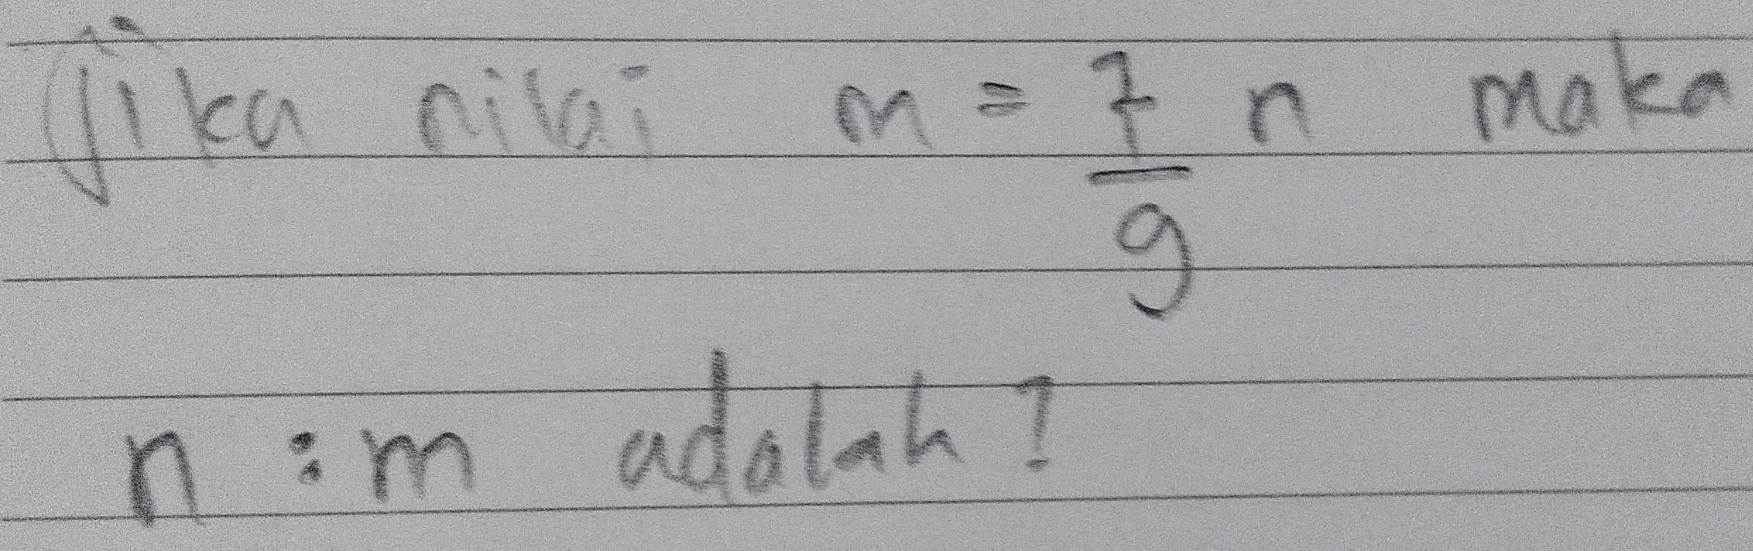 Jika nilai m = 7/9 n maka
n : m adalah?